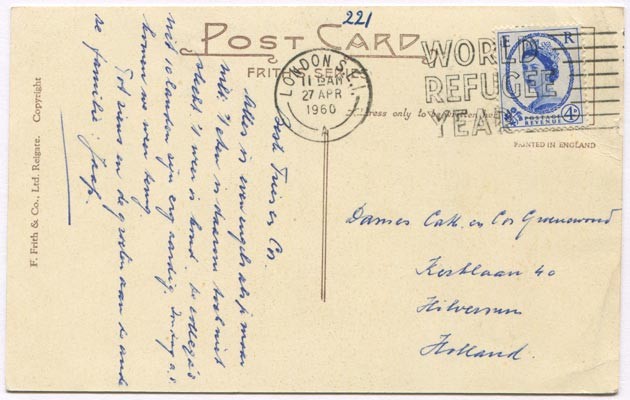 221
POST CARD
FRITH SERIES
LONDON S.E.1
11 15AM
27 APR
1960
A
WORLD
REFUGEE
YEAR
E R
4D
POSTAGE
REVENUE
Address only to be written here
PRINTED IN ENGLAND
F. Frith & Co., Ltd. Reigate. Copyright
Best Truus en Cos.
Alles is even engels als je maar
wilt. 't eten is daarom toch niet
slecht. 't weer is koud. De collega's
uit 10 landen zijn erg aardig. Zondag a.s.
komen we weer terug
Tot ziens en de groeten aan de ande
re familie: Jaap.
Dames Cath. en Cos Groenewoud
Kerklaan 40
Hilversum
Holland.